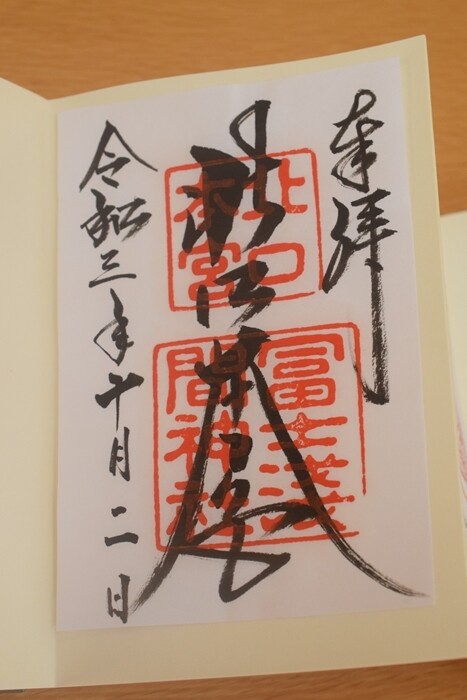 奉拝
北口
本宮
冨士淺
間神社
令和三年十月二日